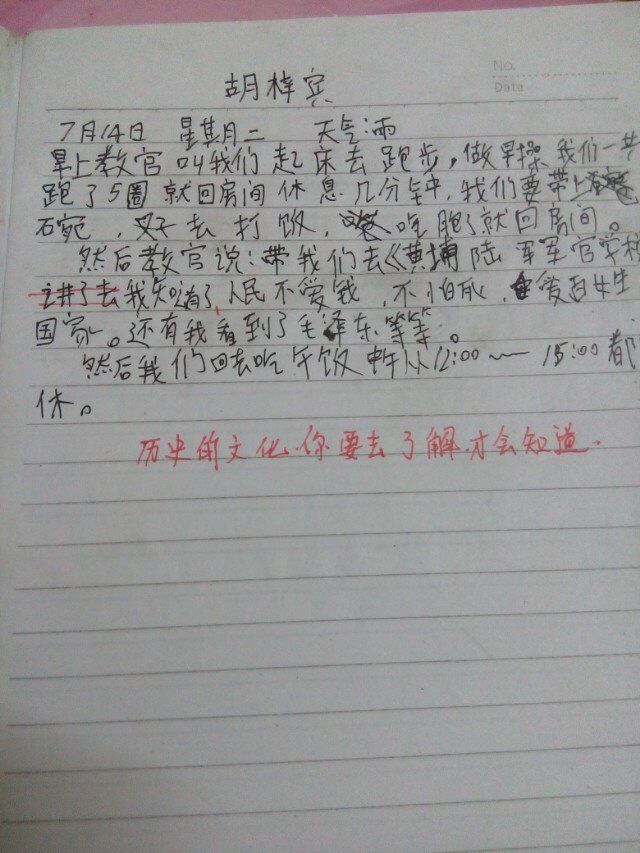 No.
Date
胡梓宾
7月14日 星期二 天气:雨
早上教官叫我们起床去跑步,做早操,我们一共
跑了5圈就回房间休息几分钟,我们要带上
石宛,筷子去打饭,吃饱了就回房间。
然后教官说:带我们去《黄埔陆军军官学校
我知道了人民不爱钱,不怕死,爱百姓
国家。还有我看到了毛泽东等等。
然后我们回去吃午饭 从12:00~15:00都
休。
历史的文化,你要去了解才会知道.